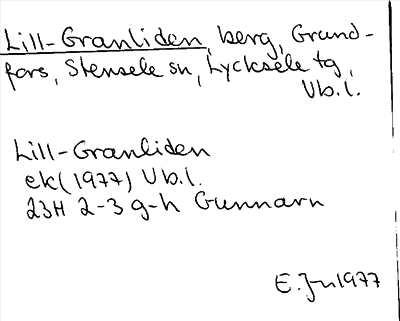 Lill-Granliden, berg, Grund-
fors, Stensele sn, Lycksele tg,
Vb.l.
Lill-Granliden
ek (1977) Vb.l.
23H 2-3 g-h Gunnarn
E. Jn 1977